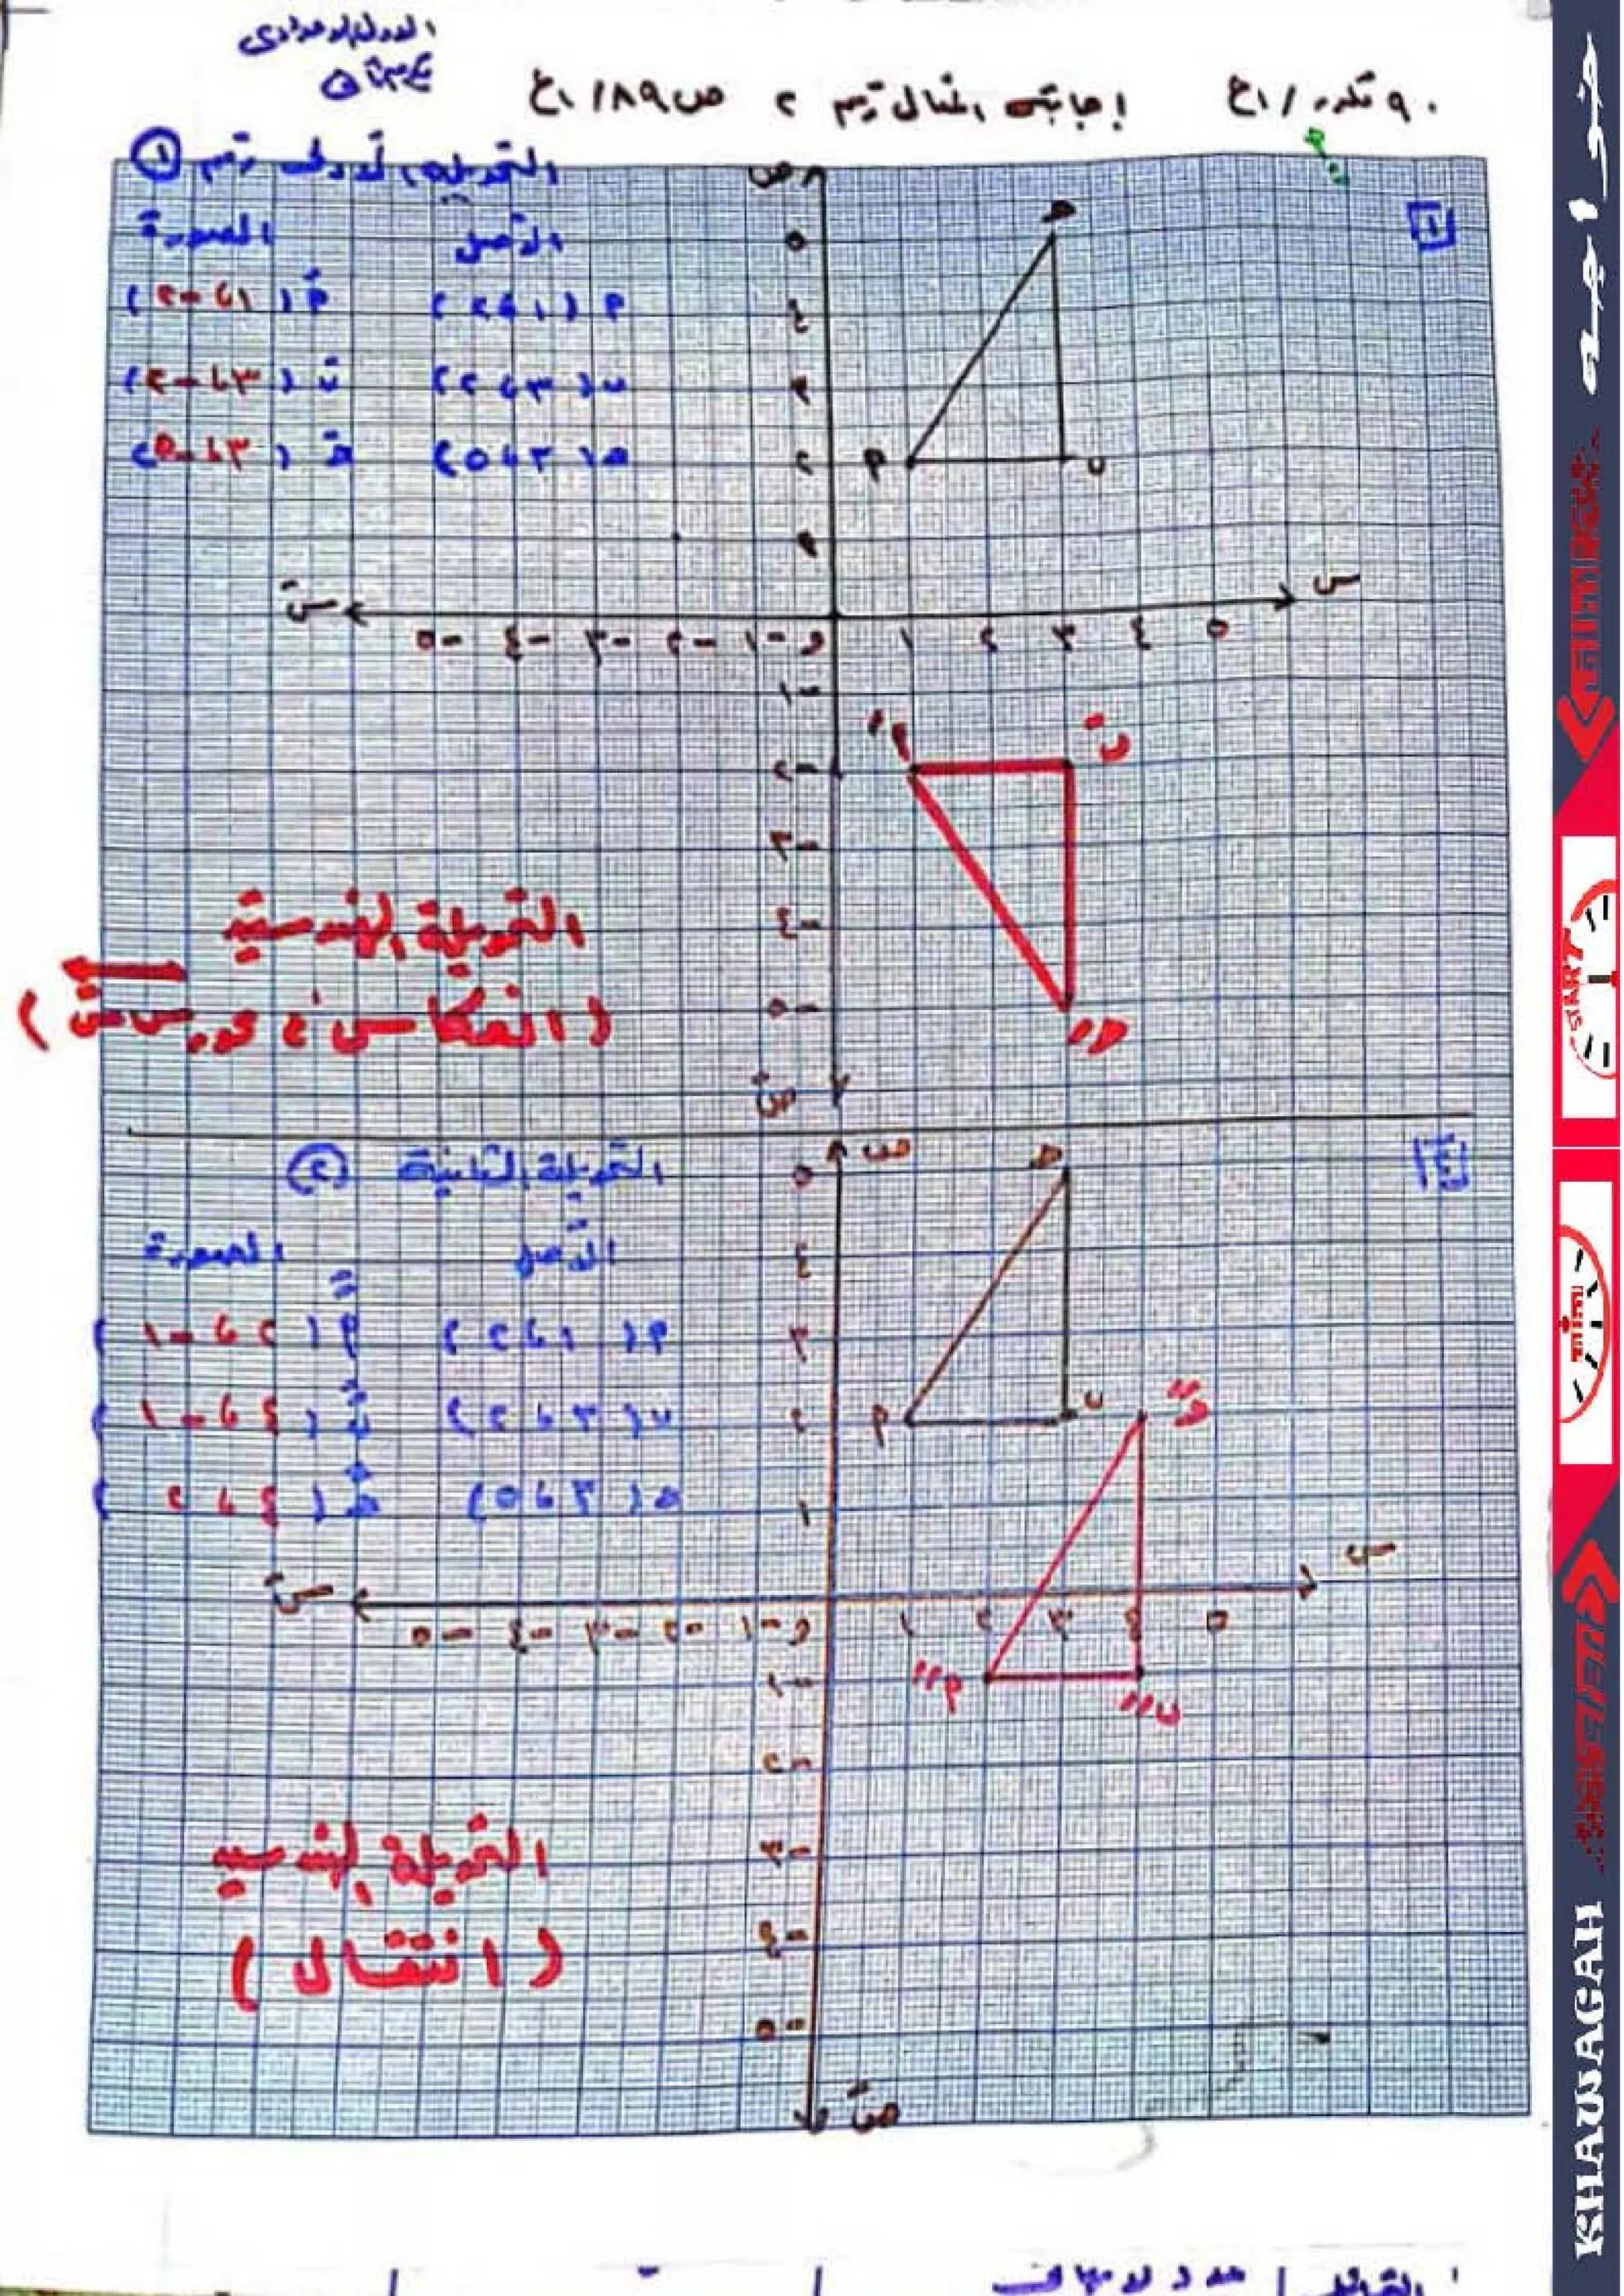 الأول الإعدادى
إجابة المثال رقم ٢ ص ٨٩ / ع١
التحويلة الأولى رقم ①
الأصل الصورة
٢ (١، ٢) ٢َ (١، -٢)
ب (٣، ٢) بَ (٣، -٢)
هـ (٣، ٥) هـَ (٣، -٥)
ص
١
هـ
٥
٤
٣
٢
١
٢ ب
س سَ
-٥ -٤ -٣ -٢ -١ و ١ ٢ ٣ ٤ ٥
-١
-٢
-٣
-٤
-٥
٢َ بَ
هـَ
صَ
التحويلة الهندسية
(انعكاس فى محور س سَ)
التحويلة الثانية ②
الأصل الصورة
٢ (١، ٢) ٢ً (٢، -١)
ب (٣، ٢) بً (٤، -١)
هـ (٣، ٥) هـً (٤، ٢)
ص
هـ
٥
٤
٣
٢
١
٢ ب
هـً
س سَ
-٥ -٤ -٣ -٢ -١ و ١ ٢ ٣ ٤ ٥
٢ً بً
-١
-٢
-٣
-٤
-٥
صَ
التحويلة الهندسية
(انتقال)
خواجه
START
KHAWAGAH